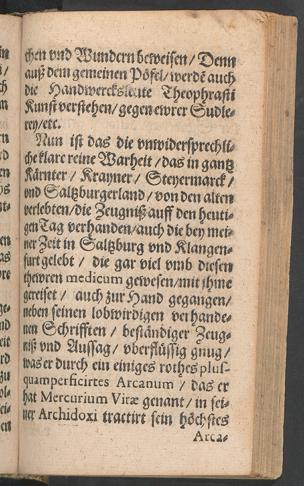 chen vnd Wundern beweisen / Denn
auß dem gemeinen Pöfel / werdẽ auch
die Handwercksleute Theophrasti
Kunst verstehen / gegen ewrer Sudle-
rey / etc.
Nun ist das die vnwidersprechli-
che klare reine Warheit / das in gantz
Kärnter / Krayner / Steyermarck /
vnd Saltzburgerland / von den alten
verlebten / die Zeugniß auff den heuti-
gen Tag verhanden / auch die bey mei-
ner Zeit in Saltzburg vnd Klangen-
furt gelebt / die gar viel vmb diesen
thewren medicum gewesen / mit ihme
gereiset / auch zur Hand gegangen /
neben seinen lobwirdigen verhande-
nen Schrifften / beständiger Zeug-
niß vnd Aussag / vberflüssig gnug /
was er durch ein einiges rothes plus-
quamperficirtes Arcanum / das er
hat Mercurium Vitæ genant / in sei-
ner Archidoxi tractirt sein höchstes
Arca-